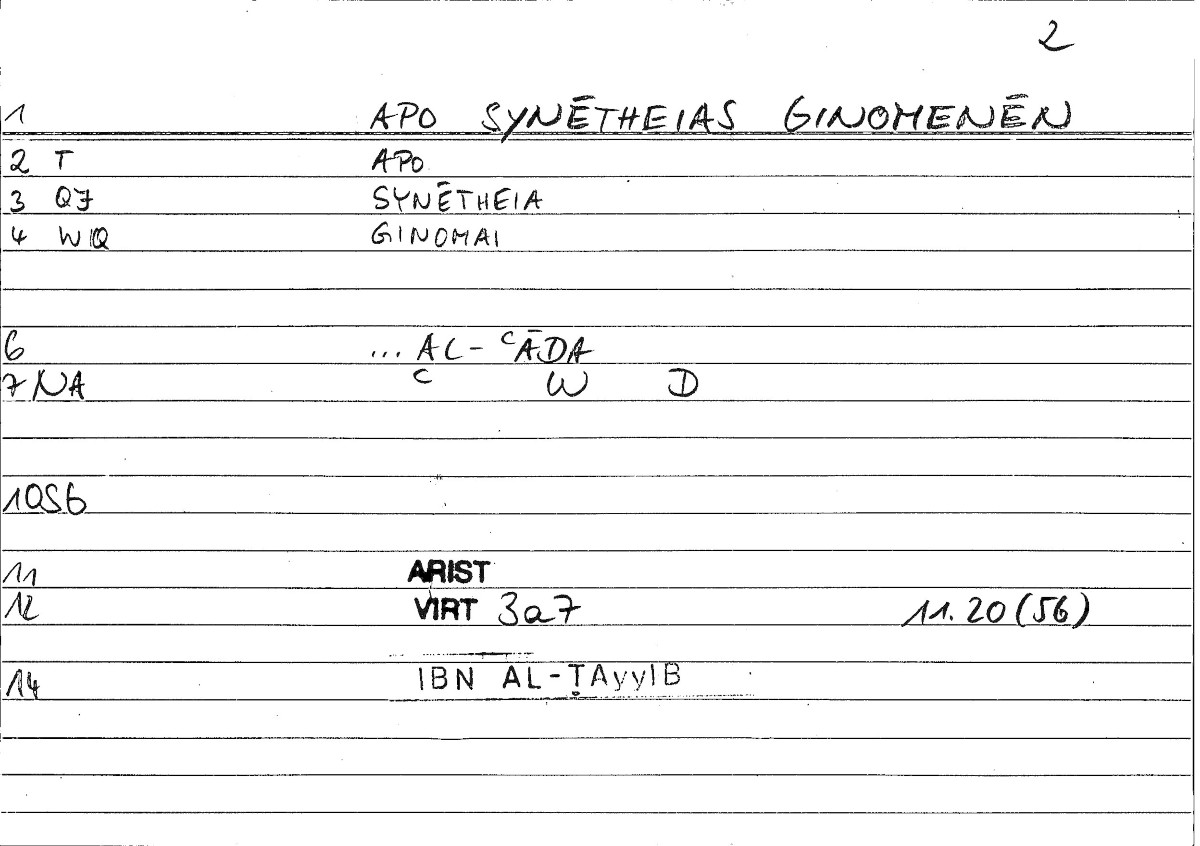 2
1 APO SYNĒTHEIAS GINOMENĒN
2 T APO
3 QJ SYNĒTHEIA
4 WQ GINOMAI
6 ... AL-ᶜĀDA
7 NA ᶜ W D
10 S6
11 ARIST
12 VIRT 3a7 11.20 (56)
14 IBN AL-ṬAyyIB